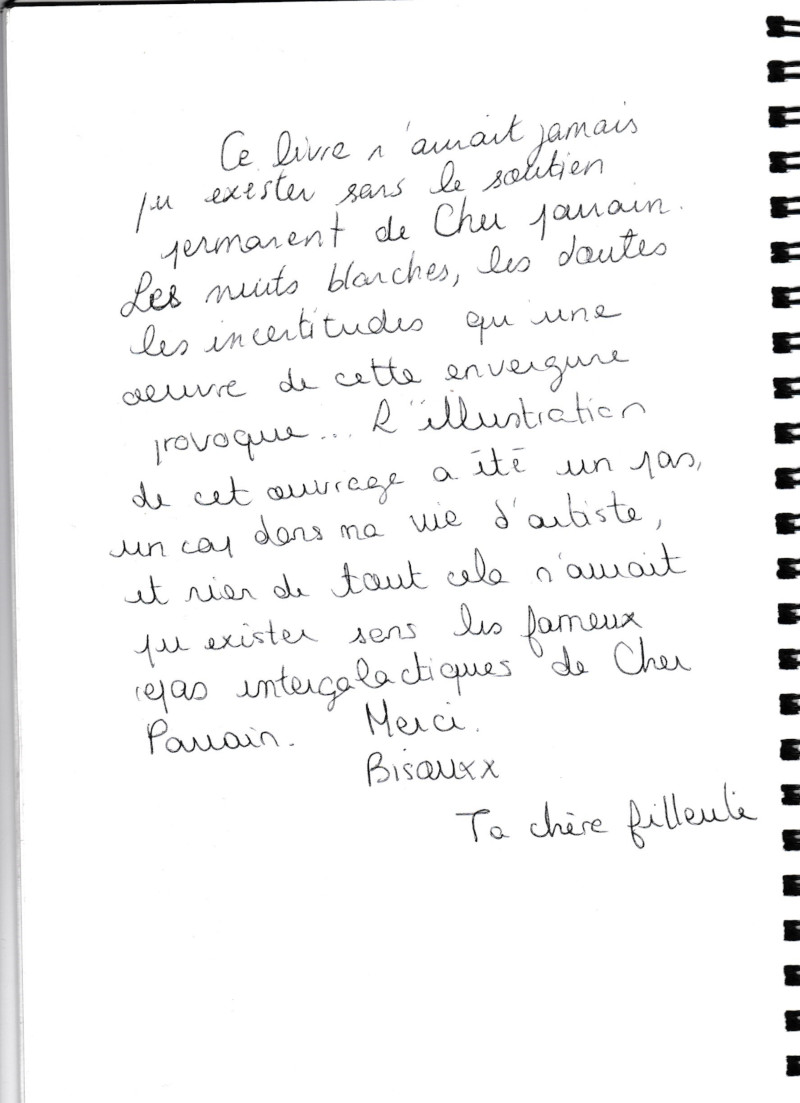 Ce livre n'aurait jamais
pu exister sans le soutien
permanent de Cher parrain.
Les nuits blanches, les doutes
les incertitudes qu'une
oeuvre de cette envergure
provoque... L'illustration
de cet ouvrage a été un pas,
un cap dans ma vie d'artiste,
et rien de tout cela n'aurait
pu exister sans les fameux
repas intergalactiques de Cher
Parrain. Merci.
Bisouxx
Ta chère filleule